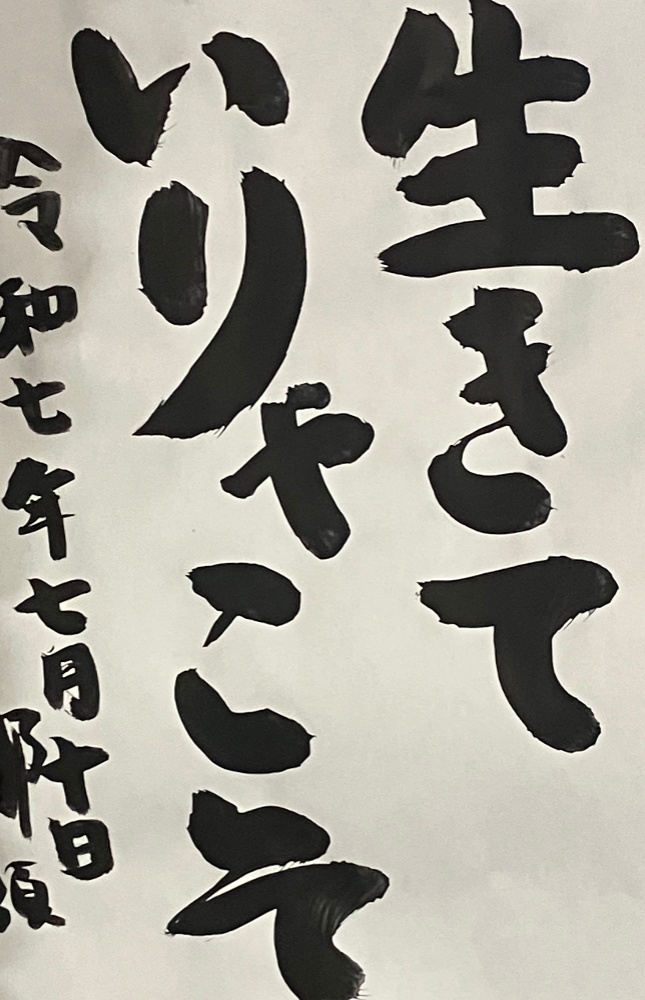 生きて
いりゃこそ
令和七年七月十日
那須